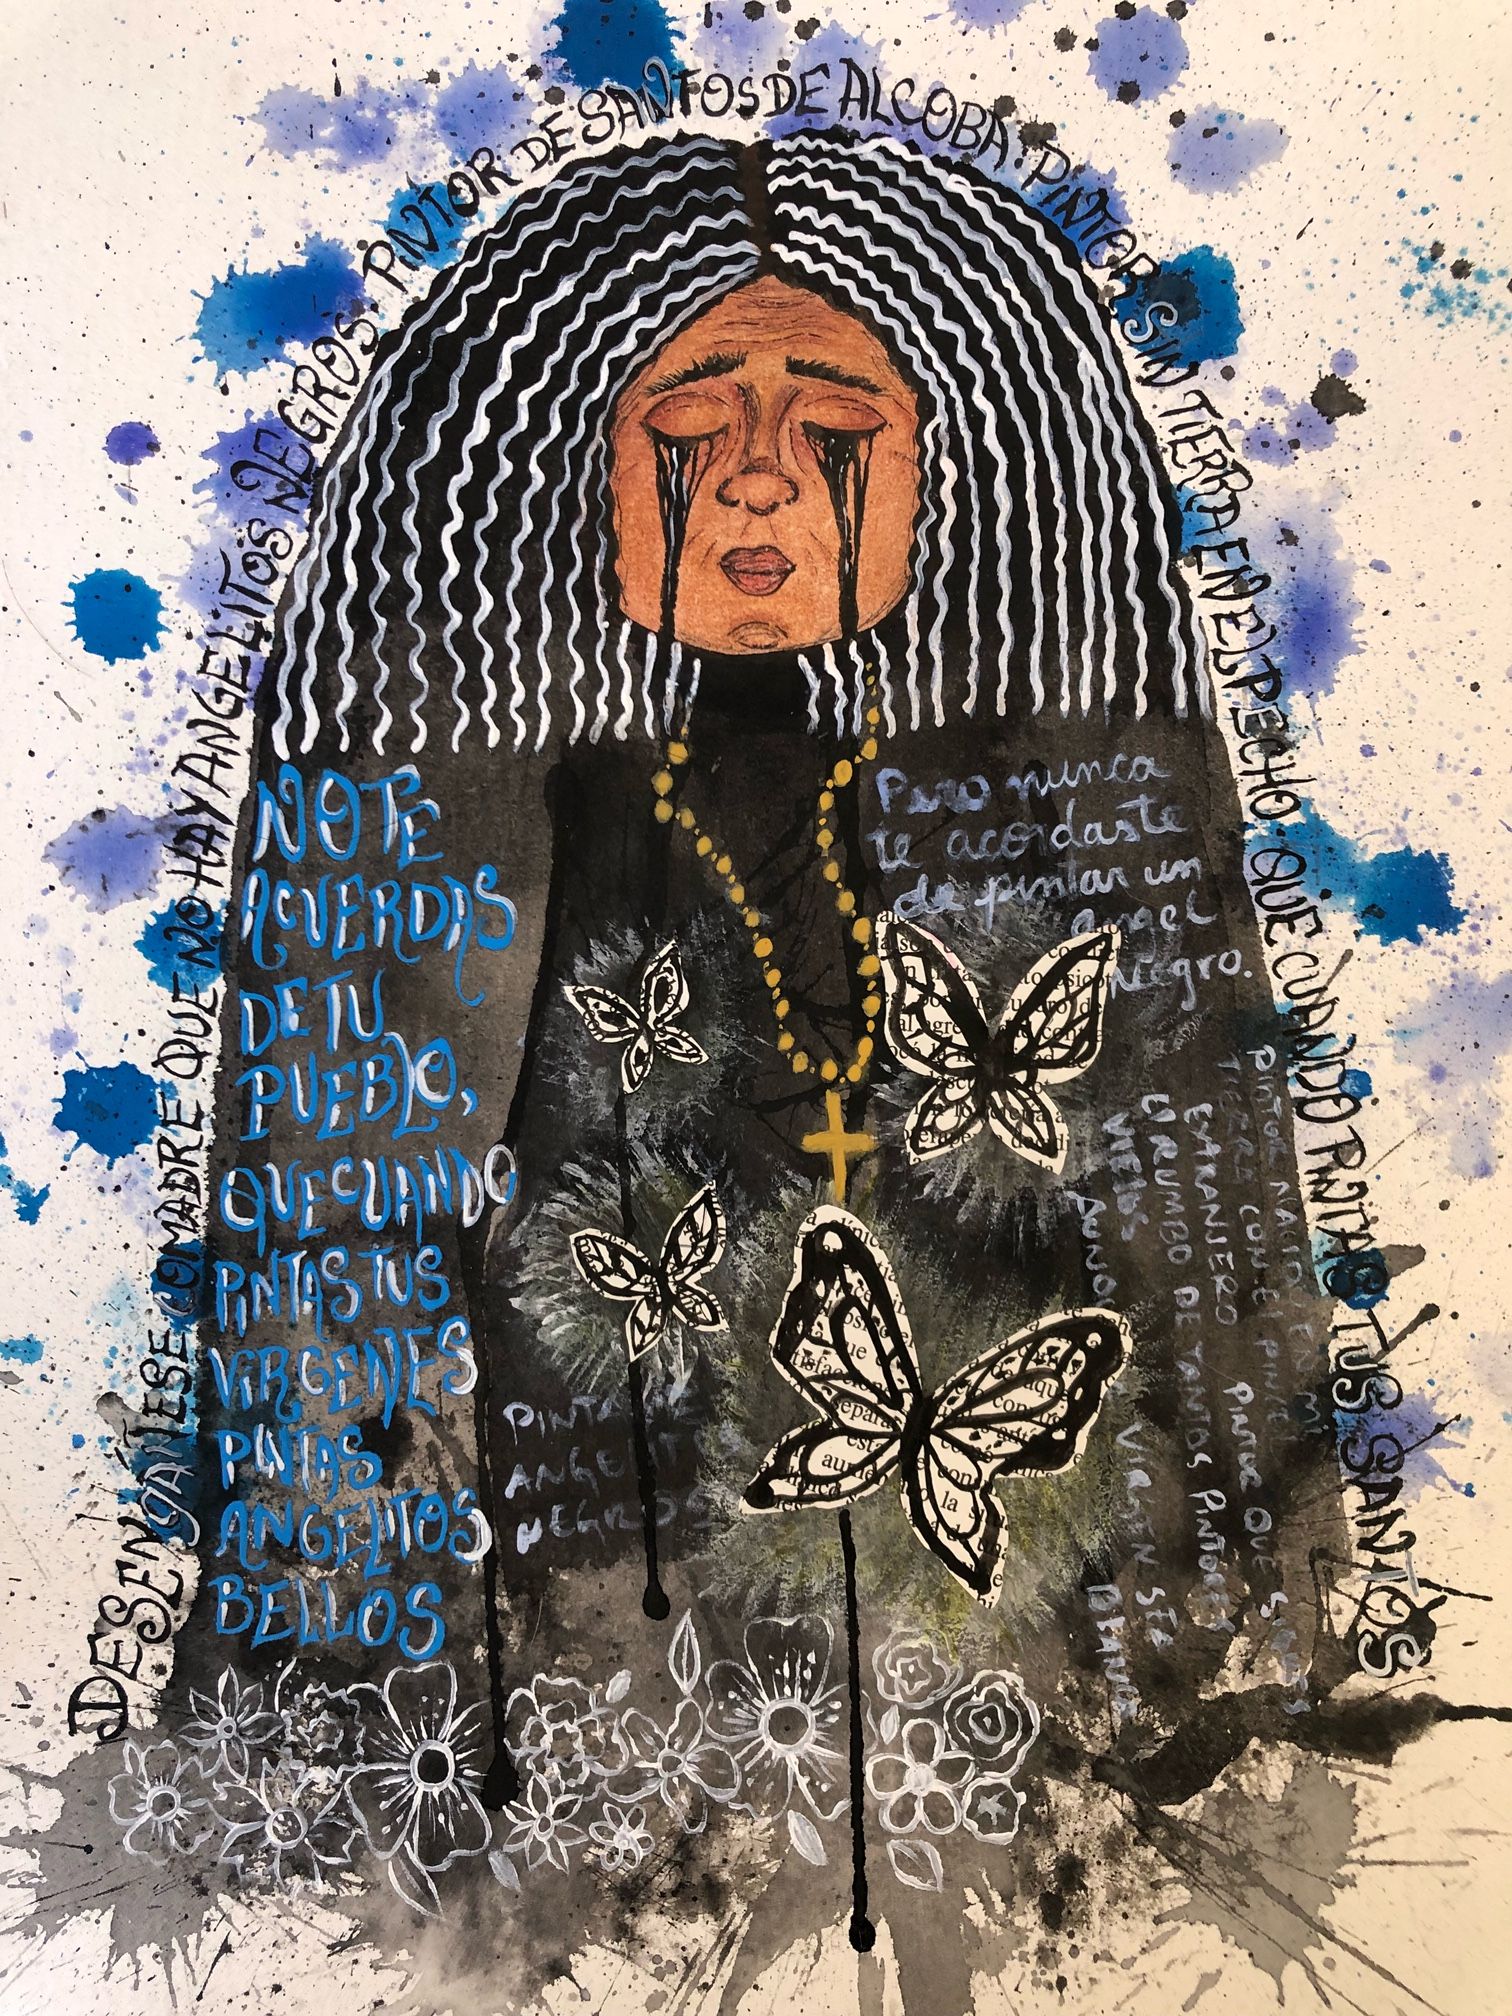 DESENGÁÑESE COMADRE QUE NO HAY ANGELITOS NEGROS. PINTOR DE SANTOS DE ALCOBA. PINTOR SIN TIERRA EN EL PECHO. QUE CUANDO PINTAS TUS SANTOS
NO TE
ACUERDAS
DE TU
PUEBLO,
QUE CUANDO
PINTAS TUS
VIRGENES
PINTAS
ANGELITOS
BELLOS
Pero nunca
te acordaste
de pintar un
angel
Negro.
PINTAME
ANGELITOS
NEGROS
PINTOR NACIDO EN MI
TIERRA CON EL PINCEL
EXTRANJERO PINTOR QUE SIGUES
EL RUMBO DE TANTOS PINTORES
VIEJOS
AUNQUE LA VIRGEN SEA
BLANCA